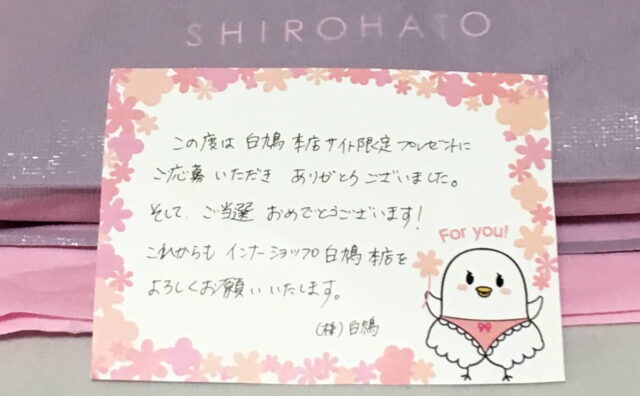 SHIROHATO
この度は 白鳩 本店サイト限定 プレゼントに
ご応募 いただき ありがとうございました。
そして、ご当選 おめでとうございます!
これからも インナーショップ白鳩 本店を
よろしくお願いいたします。
(株)白鳩
For you!